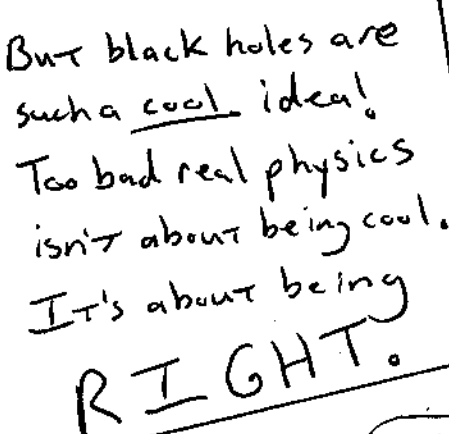 But black holes are
such a cool idea!
Too bad real physics
isn't about being cool.
It's about being
RIGHT.